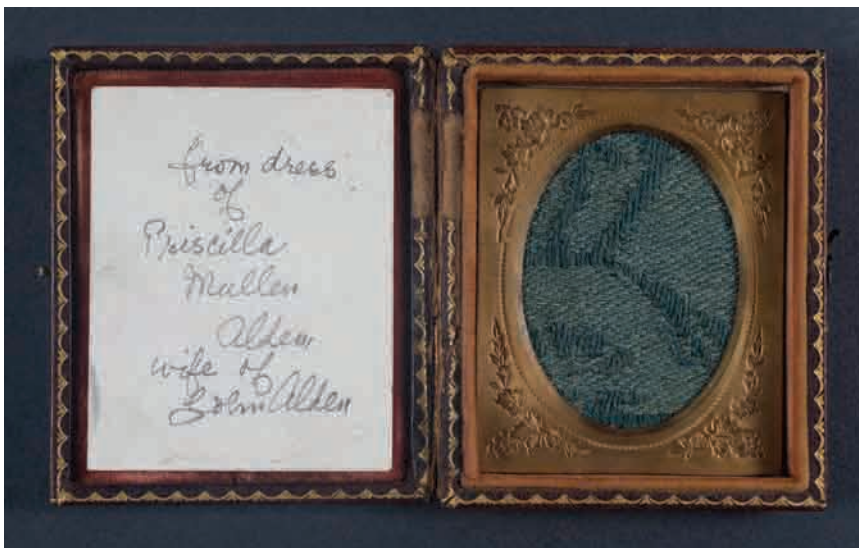 from dress
of
Priscilla
Mullen
Alden,
wife of
John Alden